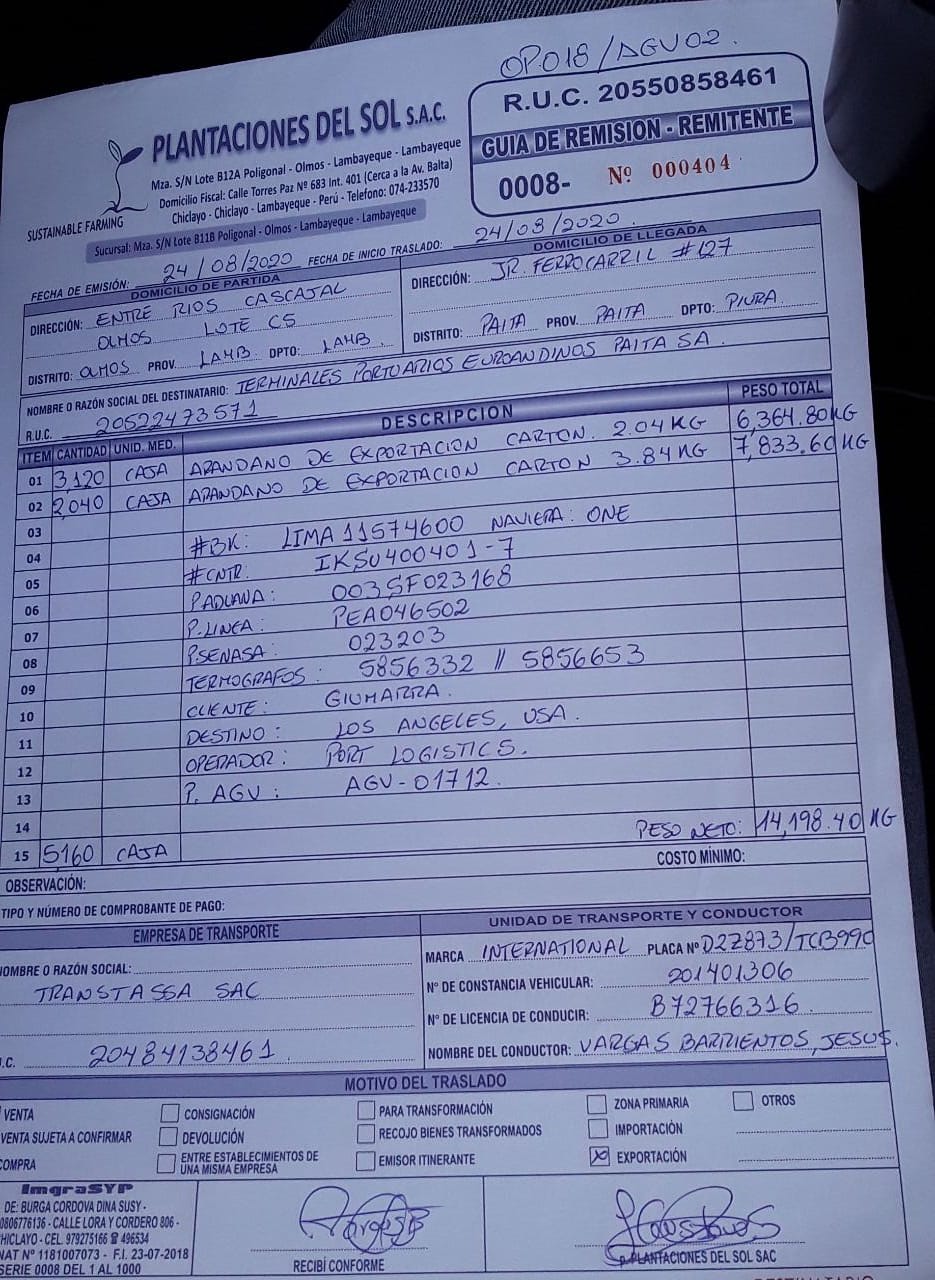 OP.018/AGU02.
PLANTACIONES DEL SOL S.A.C.
Mza. S/N Lote B12A Poligonal - Olmos - Lambayeque - Lambayeque
Domicilio Fiscal: Calle Torres Paz Nº 683 Int. 401 (Cerca a la Av. Balta)
Chiclayo - Chiclayo - Lambayeque - Perú - Telefono: 074-233570
SUSTAINABLE FARMING
Sucursal: Mza. S/N Lote B11B Poligonal - Olmos - Lambayeque - Lambayeque
R.U.C. 20550858461
GUIA DE REMISION - REMITENTE
0008- Nº 000404
FECHA DE EMISIÓN: 24/08/2020 FECHA DE INICIO TRASLADO: 24/08/2020.
DOMICILIO DE PARTIDA
DIRECCIÓN: ENTRE RIOS CASCAJAL
OLMOS LOTE C5
DISTRITO: OLMOS PROV. LAMB DPTO: LAMB.
DOMICILIO DE LLEGADA
DIRECCIÓN: JR. FERROCARRIL #127
DISTRITO: PAITA PROV. PAITA DPTO: PIURA
NOMBRE O RAZÓN SOCIAL DEL DESTINATARIO: TERMINALES PORTUARIOS EUROANDINOS PAITA SA.
R.U.C. 20522473571
ITEM CANTIDAD UNID. MED. DESCRIPCION PESO TOTAL
01 3,120 CAJA ARANDANO DE EXPORTACION CARTON. 2.04 KG 6,364.80KG
02 2,040 CAJA ARANDANO DE EXPORTACION CARTON 3.84 KG 7,833.60 KG
03
04 #BK: LIMA11574600 NAVIERA: ONE
05 #CNTR. IKSU400401-7
06 P.ADUANA: 003SF023168
07 P.LINEA: PEA046502
08 P.SENASA: 023203
09 TERMOGRAFOS: 5856332 // 5856653
10 CLIENTE: GIUMARRA.
11 DESTINO: LOS ANGELES, USA.
12 OPERADOR: PORT LOGISTICS.
13 P. AGU: AGU-01712.
14
15 5160 CAJA PESO NETO: 14,198.40 KG
COSTO MÍNIMO:
OBSERVACIÓN:
TIPO Y NÚMERO DE COMPROBANTE DE PAGO:
EMPRESA DE TRANSPORTE
NOMBRE O RAZÓN SOCIAL:
TRANSTASSA SAC
.C. 20484138461
UNIDAD DE TRANSPORTE Y CONDUCTOR
MARCA INTERNATIONAL PLACA Nº D2Z873/TCB990
Nº DE CONSTANCIA VEHICULAR: 201401306
Nº DE LICENCIA DE CONDUCIR: B72766316
NOMBRE DEL CONDUCTOR: VARGAS BARRIENTOS, JESUS.
MOTIVO DEL TRASLADO
VENTA CONSIGNACIÓN PARA TRANSFORMACIÓN ZONA PRIMARIA OTROS
VENTA SUJETA A CONFIRMAR DEVOLUCIÓN RECOJO BIENES TRANSFORMADOS IMPORTACIÓN
COMPRA ENTRE ESTABLECIMIENTOS DE UNA MISMA EMPRESA EMISOR ITINERANTE X EXPORTACIÓN
ImgraSYP
DE: BURGA CORDOVA DINA SUSY -
0806776136 - CALLE LORA Y CORDERO 806 -
HICLAYO - CEL. 979275166 ☎ 496534
NAT Nº 1181007073 - F.I. 23-07-2018
SERIE 0008 DEL 1 AL 1000
RECIBÍ CONFORME
p. PLANTACIONES DEL SOL SAC
DESTINATARIO